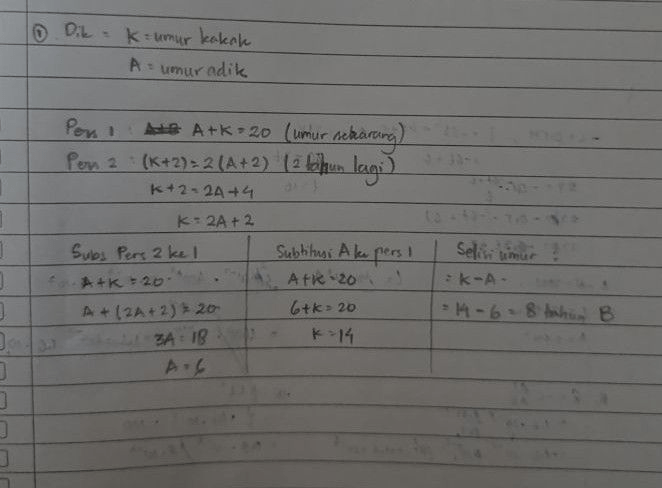 ① Dik = K = umur kakak
A = umur adik
Pers 1 : A+K = 20 (umur sekarang)
Pers 2 : (K+2) = 2(A+2) (2 tahun lagi)
K+2 = 2A+4
K = 2A+2
Subs Pers 2 ke 1
A+K = 20
A + (2A+2) = 20
3A = 18
A = 6
Subtitusi A ke pers 1
A+K = 20
6+K = 20
K = 14
Selisi umur :
= K-A
= 14 - 6 = 8 tahun B